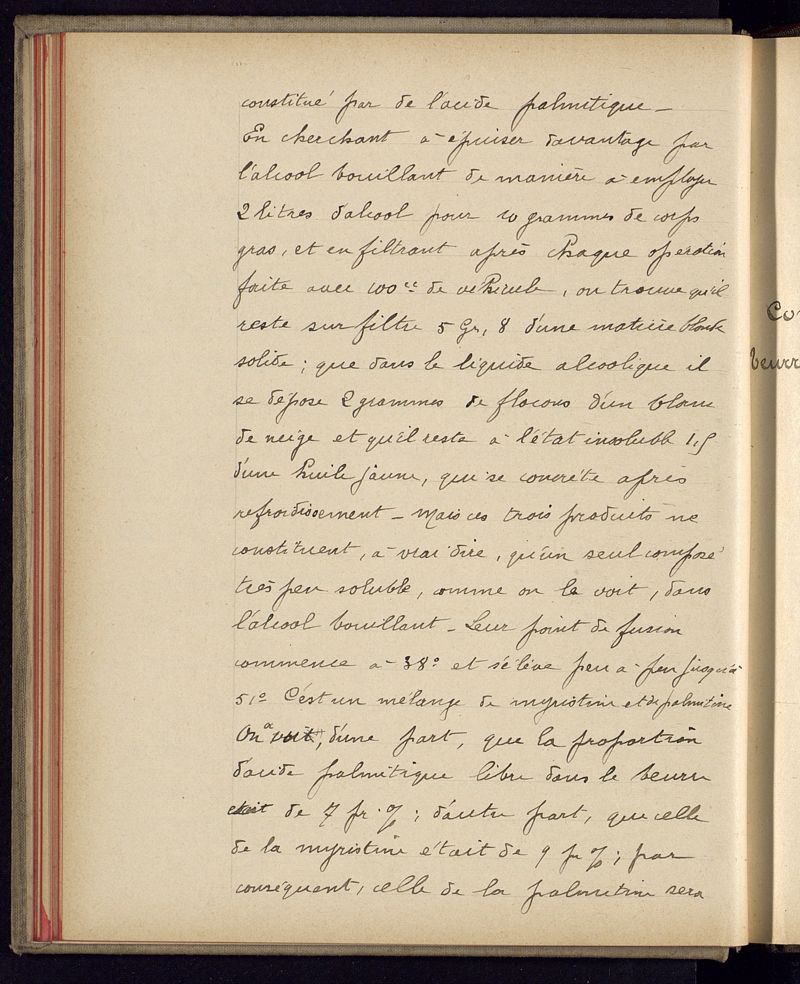 constitué par de l'acide palmitique –
En cherchant à épuiser davantage par
l'alcool bouillant de manière à employer
2 litres d'alcool pour 10 grammes de corps
gras, et en filtrant après chaque opération
faite avec 100cc de véhicule, on trouve qu'il
reste sur filtre 5 Gr, 8 d'une matière blanche
solide ; que dans le liquide alcoolique il
se dépose 2 grammes de flocons d'un blanc
de neige et qu'il reste à l'état insoluble 1,5
d'une huile jaune, qui se concrète après
refroidissement – Mais ces trois produits ne
constituent, à vrai dire, qu'un seul composé
très peu soluble, comme on le voit, dans
l'alcool bouillant – Leur point de fusion
commence à 38° et s'élève peu à peu jusqu'à
51° C'est un mélange de myristine et de palmitine
On a vu, d'une part, que la proportion
d'acide palmitique libre dans le beurre
était de 7 pr % ; d'autre part, que celle
de la myristine était de 9 pr % ; par
conséquent, celle de la palmitine sera
Co
beurr